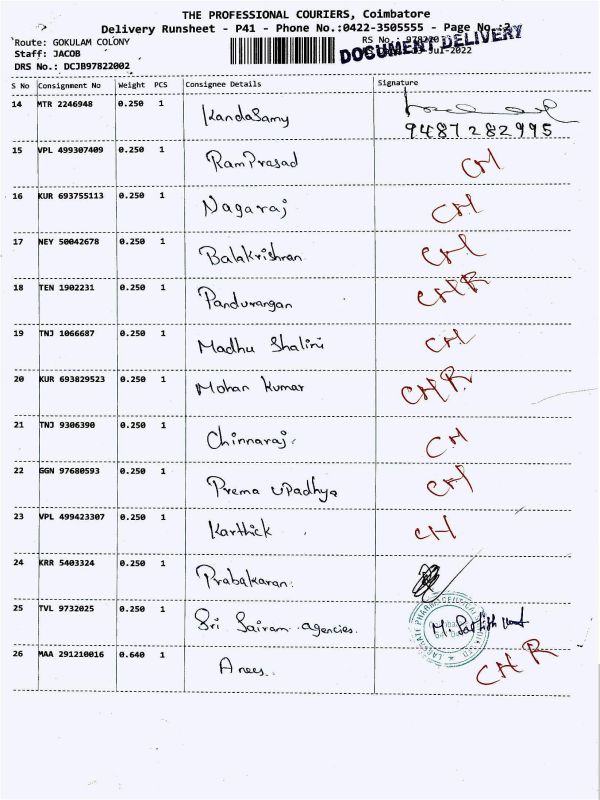 THE PROFESSIONAL COURIERS, Coimbatore
Delivery Runsheet - P41 - Phone No.:0422-3505555 - Page No.:2
Route: GOKULAM COLONY
RS No.: 978220
DOCUMENT DELIVERY
Staff: JACOB
-Jul-2022
DRS No.: DCJB97822002
S No Consignment No Weight PCS Consignee Details Signature
14 MTR 2246948 0.250 1 KandaSamy
9487282995
15 VPL 499307409 0.250 1 RamPrasad CH
16 KUR 693755113 0.250 1 Nagaraj CH
17 NEY 50042678 0.250 1 Balakrishnan CH
18 TEN 1902231 0.250 1 Pandurangan CHR
19 TNJ 1066687 0.250 1 Madhu Shalini CH
20 KUR 693829523 0.250 1 Mohan Kumar CHR
21 TNJ 9306390 0.250 1 Chinnaraj. CH
22 GGN 97680593 0.250 1 Prema UPadhya CH
23 VPL 499423307 0.250 1 Karthick CH
24 KRR 5403324 0.250 1 Prabakaran.
25 TVL 9732025 0.250 1 Sri Sairam agencies.
26 MAA 291210016 0.640 1 Anees. CHR